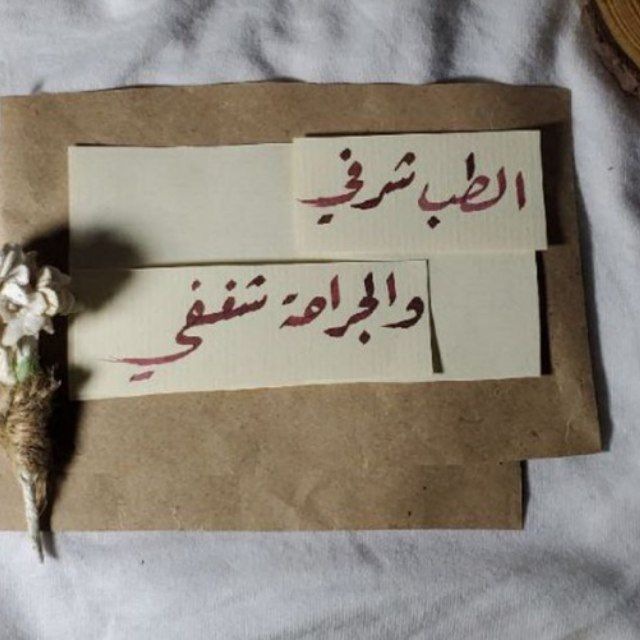 الطب شرفي
والجراحة شغفي